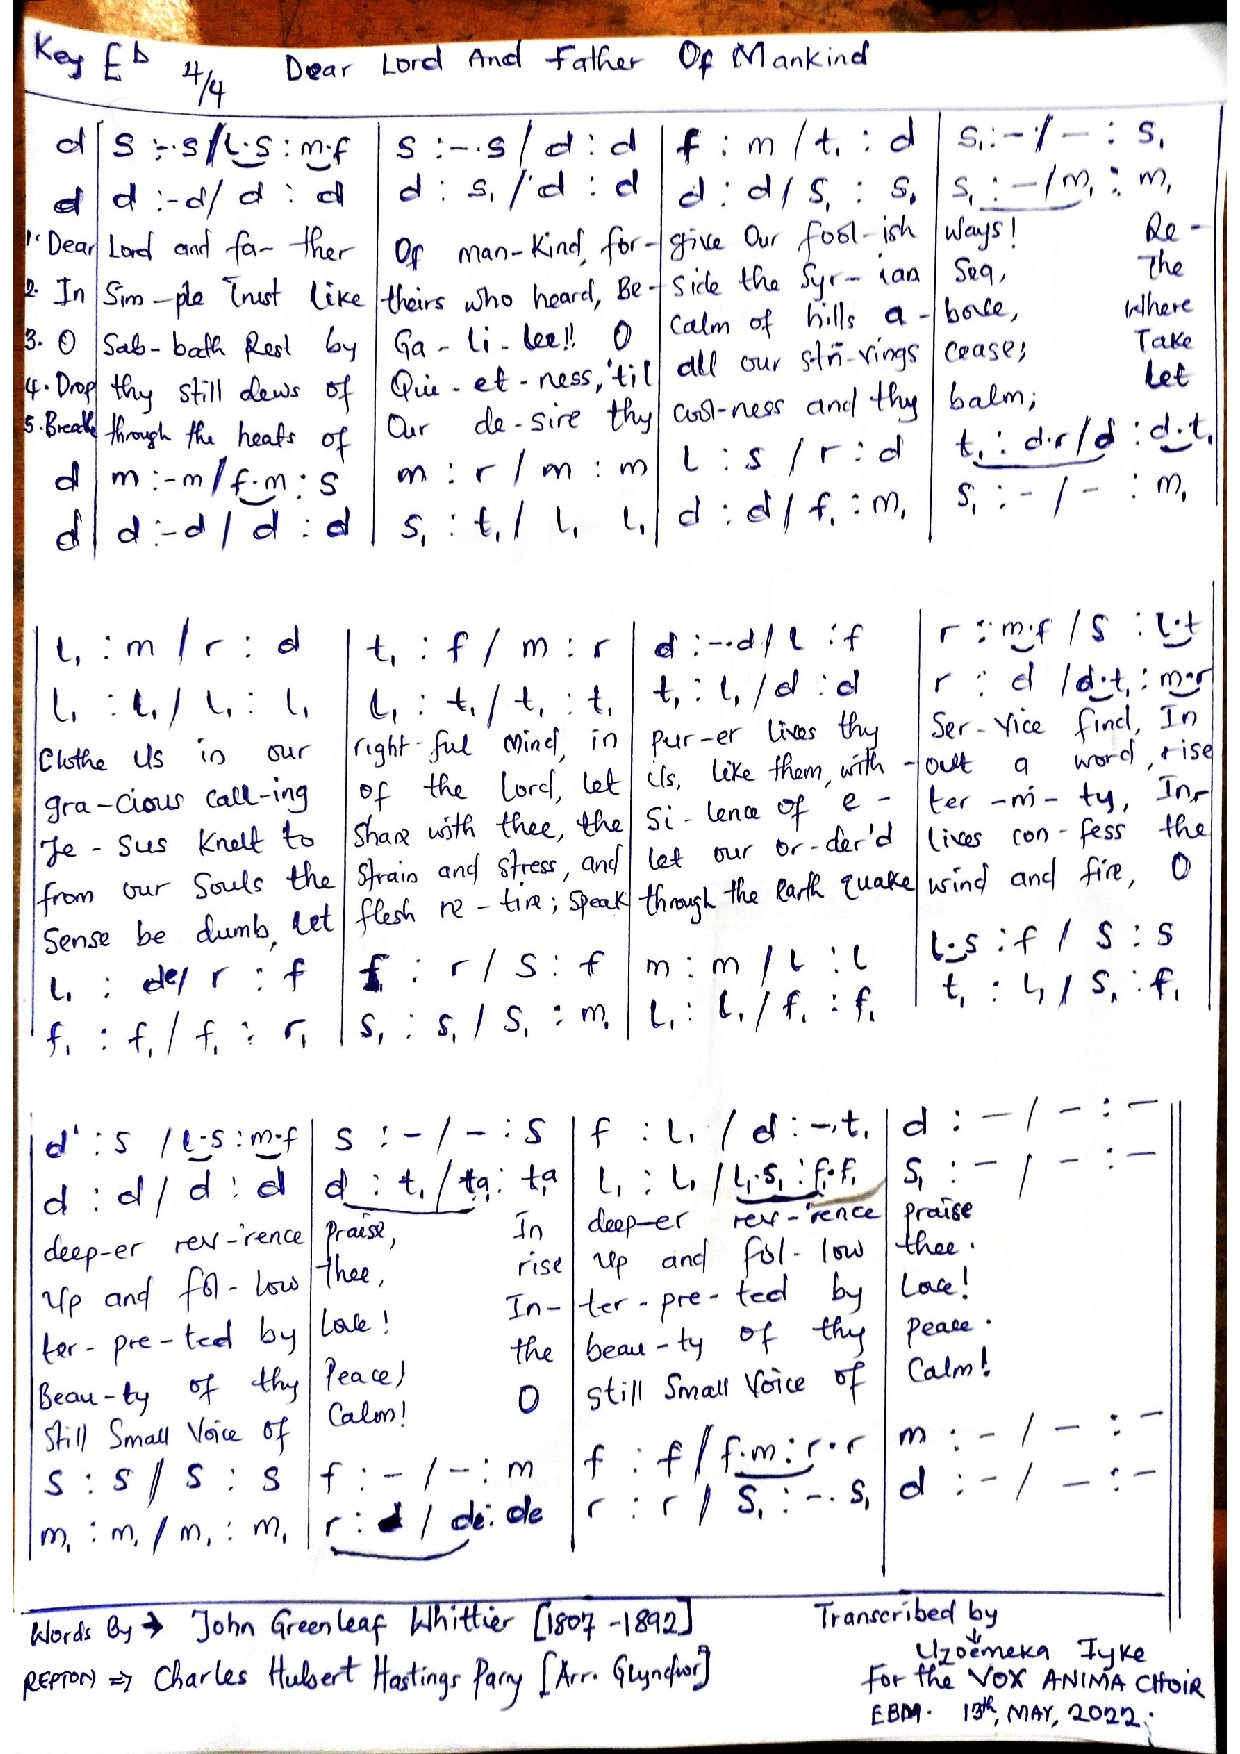 Key Eb 4/4 Dear Lord And Father Of Mankind
d | s :-.s / l.s : m.f | s :-.s / d : d | f : m / t, : d | s, : - / - : s,
d | d :-d / d : d | d : s, / d : d | d : d / s, : s, | s, : - / m, : m,
1. Dear | Lord and fa- ther | Of man-kind, for- | give Our fool-ish | Ways! Re-
2. In | Sim-ple Trust like | theirs who heard, Be- | side the Syr-ian | Sea, The
3. O | Sab-bath Rest by | Ga-li-lee!! O | Calm of hills a- | bove, where
4. Drop | thy still dews of | Qui-et-ness, 'til | all our stri-vings | cease; Take
5. Breath | through the heats of | Our de-sire thy | cool-ness and thy | balm; Let
d | m :-m / f.m : s | m : r / m : m | l : s / r : d | t, : d.r / d : d.t,
d | d :-d / d : d | s, : t, / l, l, | d : d / f, : m, | s, : - / - : m,
l, : m / r : d | t, : f / m : r | d :-.d / l : f | r : m.f / s : l.t
l, : l, / l, : l, | l, : t, / t, : t, | t, : l, / d : d | r : d / d.t, : m.r
Clothe Us in our | right-ful Mind, in | pur-er lives thy | Ser-vice find, In
gra-cious call-ing | of the Lord, let | Us, like them, with- | out a word, rise
Je-sus Knelt to | Share with thee, the | Si-lence of e- | ter-ni-ty, In-
from our Souls the | Strain and stress, and | let our or-der'd | lives con-fess the
Sense be dumb, Let | flesh re-tire; Speak | through the earth quake | wind and fire, O
l, : de / r : f | f : r / s : f | m : m / l : l | l.s : f / s : s
f, : f, / f, : r, | s, : s, / s, : m, | l, : l, / f, : f, | t, : l, / s, : f,
d' : s / l.s : m.f | s : - / - : s | f : l, / d : -.t, | d : - / - : -
d : d / d : d | d : t, / ta, : ta, | l, : l, / l,.s, : f,.f, | s, : - / - : -
deep-er rev-'rence | Praise, In | deep-er rev-'rence | praise
Up and fol-low | thee, rise | Up and fol-low | thee.
ter-pre-ted by | Love! In- | ter-pre-ted by | Love!
Beau-ty of thy | Peace, the | beau-ty of thy | peace.
Still Small Voice of | Calm! O | still Small Voice of | Calm!
s : s / s : s | f : - / - : m | f : f / f.m : r.r | m : - / - : -
m, : m, / m, : m, | r : d / de : de | r : r / s, : -.s, | d : - / - : -
Words By → John Greenleaf Whittier [1807-1892]
REPTON ⇒ Charles Hubert Hastings Parry [Arr. Glyndwr]
Transcribed by
↓
Uzoemeka Iyke
For the VOX ANIMA CHOIR
EBM. 13th, MAY, 2022.